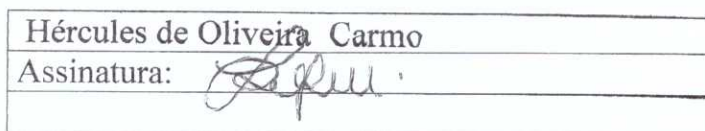 Hércules de Oliveira Carmo
Assinatura: